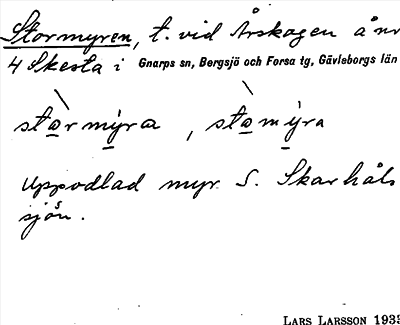 Stormyren, t. vid Årskogen å nr
4 Skesta i Gnarps sn, Bergsjö och Forsa tg, Gävleborgs län
starmyra, stamyra
Uppodlad myr S. Skarhåls
sjön.
LARS LARSSON 1933